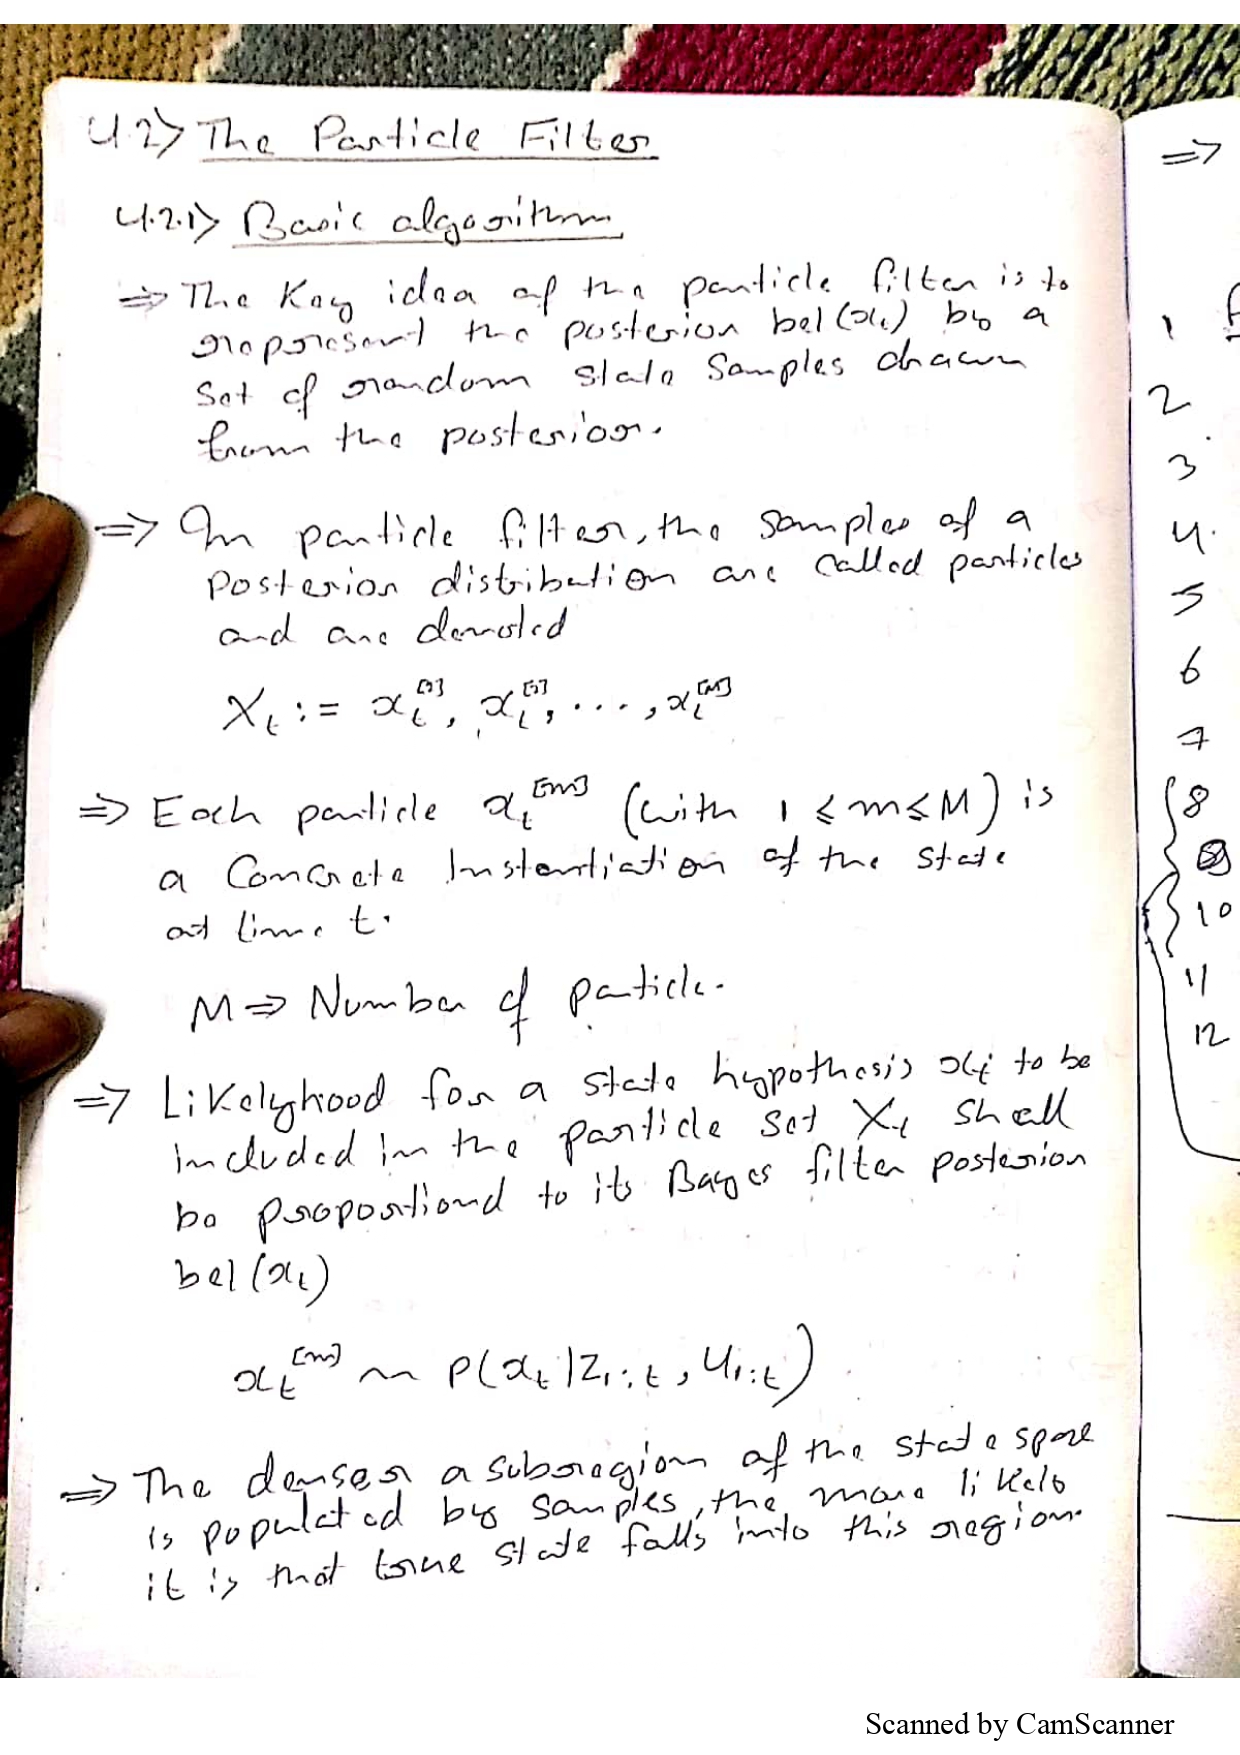 4.2> The Particle Filter
4.2.1> Basic algorithm
⇒ The Key idea of the particle filter is to
represent the posterior bel(xt) by a
Set of random state Samples drawn
from the posterior.
⇒ In particle filter, the samples of a
Posterior distribution are called particles
and are denoted
Xt := xt^[1], xt^[2], ..., xt^[M]
⇒ Each particle xt^[m] (with 1 ≤ m ≤ M) is
a Concrete Instantiation of the State
at time t.
M ⇒ Number of particle.
⇒ Likelyhood for a state hypothesis xt to be
included in the particle set Xt shall
be proportional to its Bayes filter posterior
bel(xt)
xt^[m] ~ P(xt | z1:t, u1:t)
⇒ The denser a subregion of the state space
is populated by samples, the more likely
it is that true state falls into this region.
⇒
1
2
3
4.
5
6
7
8
10
11
12
Scanned by CamScanner